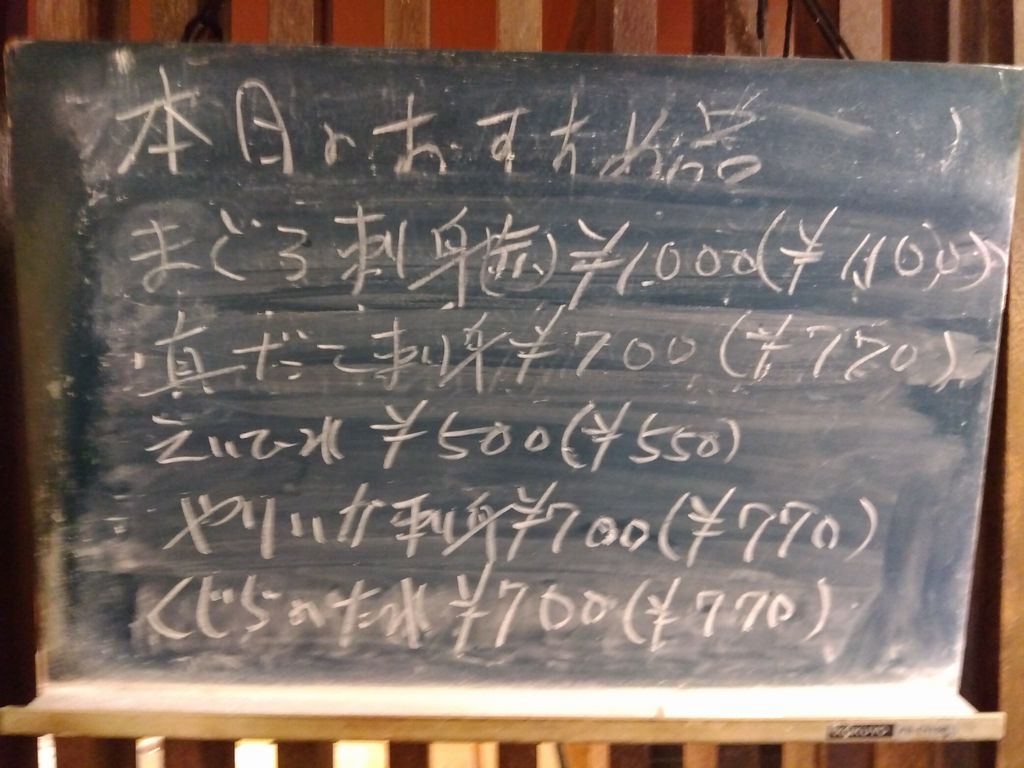 本日のおすすめ品
まぐろ刺身(赤) ¥1,000(¥1,100)
真だこ刺身 ¥700(¥770)
えいひれ ¥500(¥550)
やりいか刺身 ¥700(¥770)
くじらのたれ ¥700(¥770)
KOKUYO